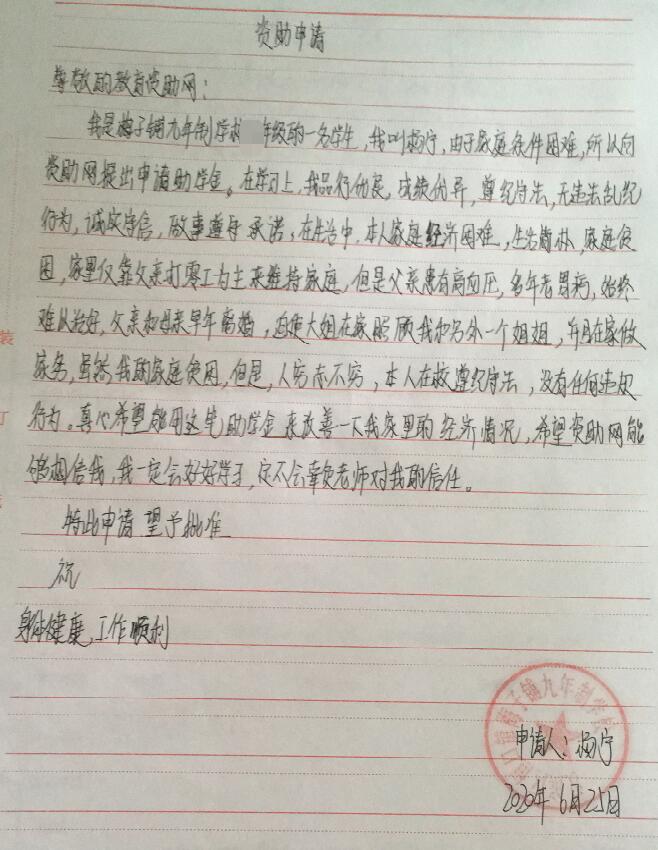 资助申请
尊敬的教育资助网:
我是梅子铺九年制学校 年级的一名学生,我叫杨宁,由于家庭条件困难,所以向
资助网提出申请助学金。在学习上,我品行优良,成绩优异,尊纪守法,无违法乱纪
行为,诚实守信,做事遵守承诺,在生活中,本人家庭经济困难,生活简朴,家庭贫
困,家里仅靠父亲打零工为主来维持家庭,但是父亲患有高血压,多年老胃病,始终
难以治好,父亲和母亲早年离婚,迫使大姐在家照顾我和另外一个姐姐,并且在家做
家务,虽然我的家庭贫困,但是,人穷志不穷,本人在校遵纪守法,没有任何违纪
行为。真心希望能用这笔助学金来改善一下我家里的经济情况,希望资助网能
够相信我,我一定会好好学习,定不会辜负老师对我的信任。
特此申请 望予批准
祝
身体健康,工作顺利
梅子铺九年制学校
申请人:杨宁
2020年6月25日
装
订